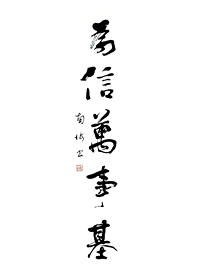 為信萬事基